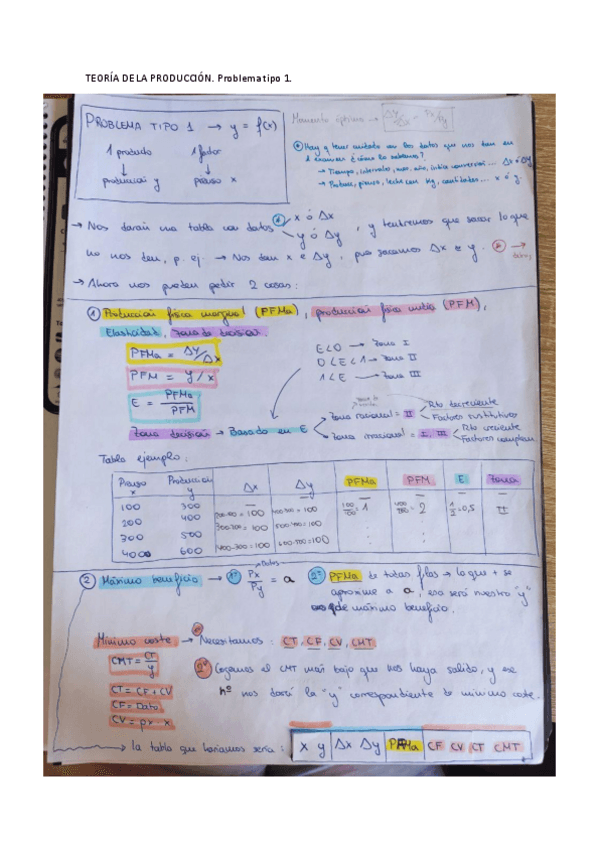 TEORÍA DE LA PRODUCCIÓN. Problema tipo 1.
PROBLEMA TIPO 1 → y = f(x)
1 producto 1 factor
↓ ↓
producción y pienso x
Momento óptimo → Δy/Δx = Px/Py
* Hay q tener cuidado con los datos que nos dan en
1 examen ¿cómo lo sabemos?
→ Tiempo, intervalos, índice conversión... Δx ó Δy
→ Pienso, leche con kg, cantidades... x ó y.
→ Nos darán una tabla con datos * x ó Δx
y ó Δy , y tendremos que sacar lo que
no nos den, p. ej: → Nos dan x e Δy, pues sacamos Δx e y. * →
→ Ahora nos pueden pedir 2 cosas:
① Producción física marginal (PFMa), producción física media (PFM),
Elasticidad, Zona de decisión.
PFMa = Δy/Δx
PFM = y/x
E = PFMa/PFM
E<0 → Zona I
0<E<1 → Zona II
1<E → Zona III
Zona decisión → Basado en E
Zona racional = II Rto decreciente
Factores sustitutivos
Zona irracional = I, III Rto creciente
Factores complem.
Tabla ejemplo:
Pienso x Producción y Δx Δy PFMa PFM E Zona
100 300 — — — — — —
200 400 200-100 = 100 400-300 = 100 100/100 = 1 400/200 = 2 1/2 = 0,5 II
300 500 300-200 = 100 500-400 = 100
400 600 400-300 = 100 600-500 = 100
② Máximo beneficio → 1º Px/Py = a
Datos
2º PFMa de todas filas → la que + se
aproxime a a, esa será nuestro "y"
de máximo beneficio.
Mínimo coste → Necesitamos: CT, CF, CV, CMT
CMT = CT/y
CT = CF + CV
CF = Dato
CV = px · x
2º Cogemos el CMT más bajo que nos haya salido, y ese
nº nos dará la "y" correspondiente de mínimo coste.
→ la tabla que haríamos sería: x y Δx Δy PFMa CF CV CT CMT